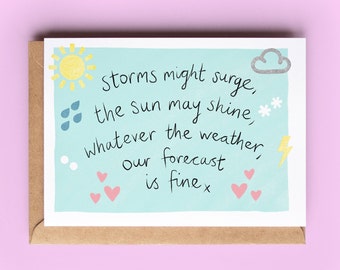 storms might surge,
the sun may shine,
whatever the weather,
our forecast
is fine x